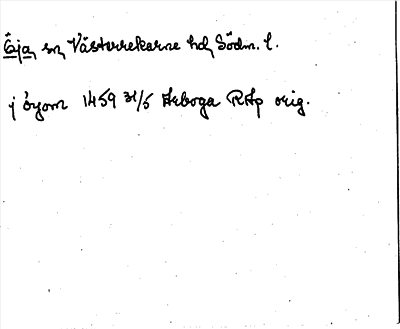 Öja sn Västerrekarne hd, Södm. l.
j öyom 1459 31/5 Arboga RAp orig.